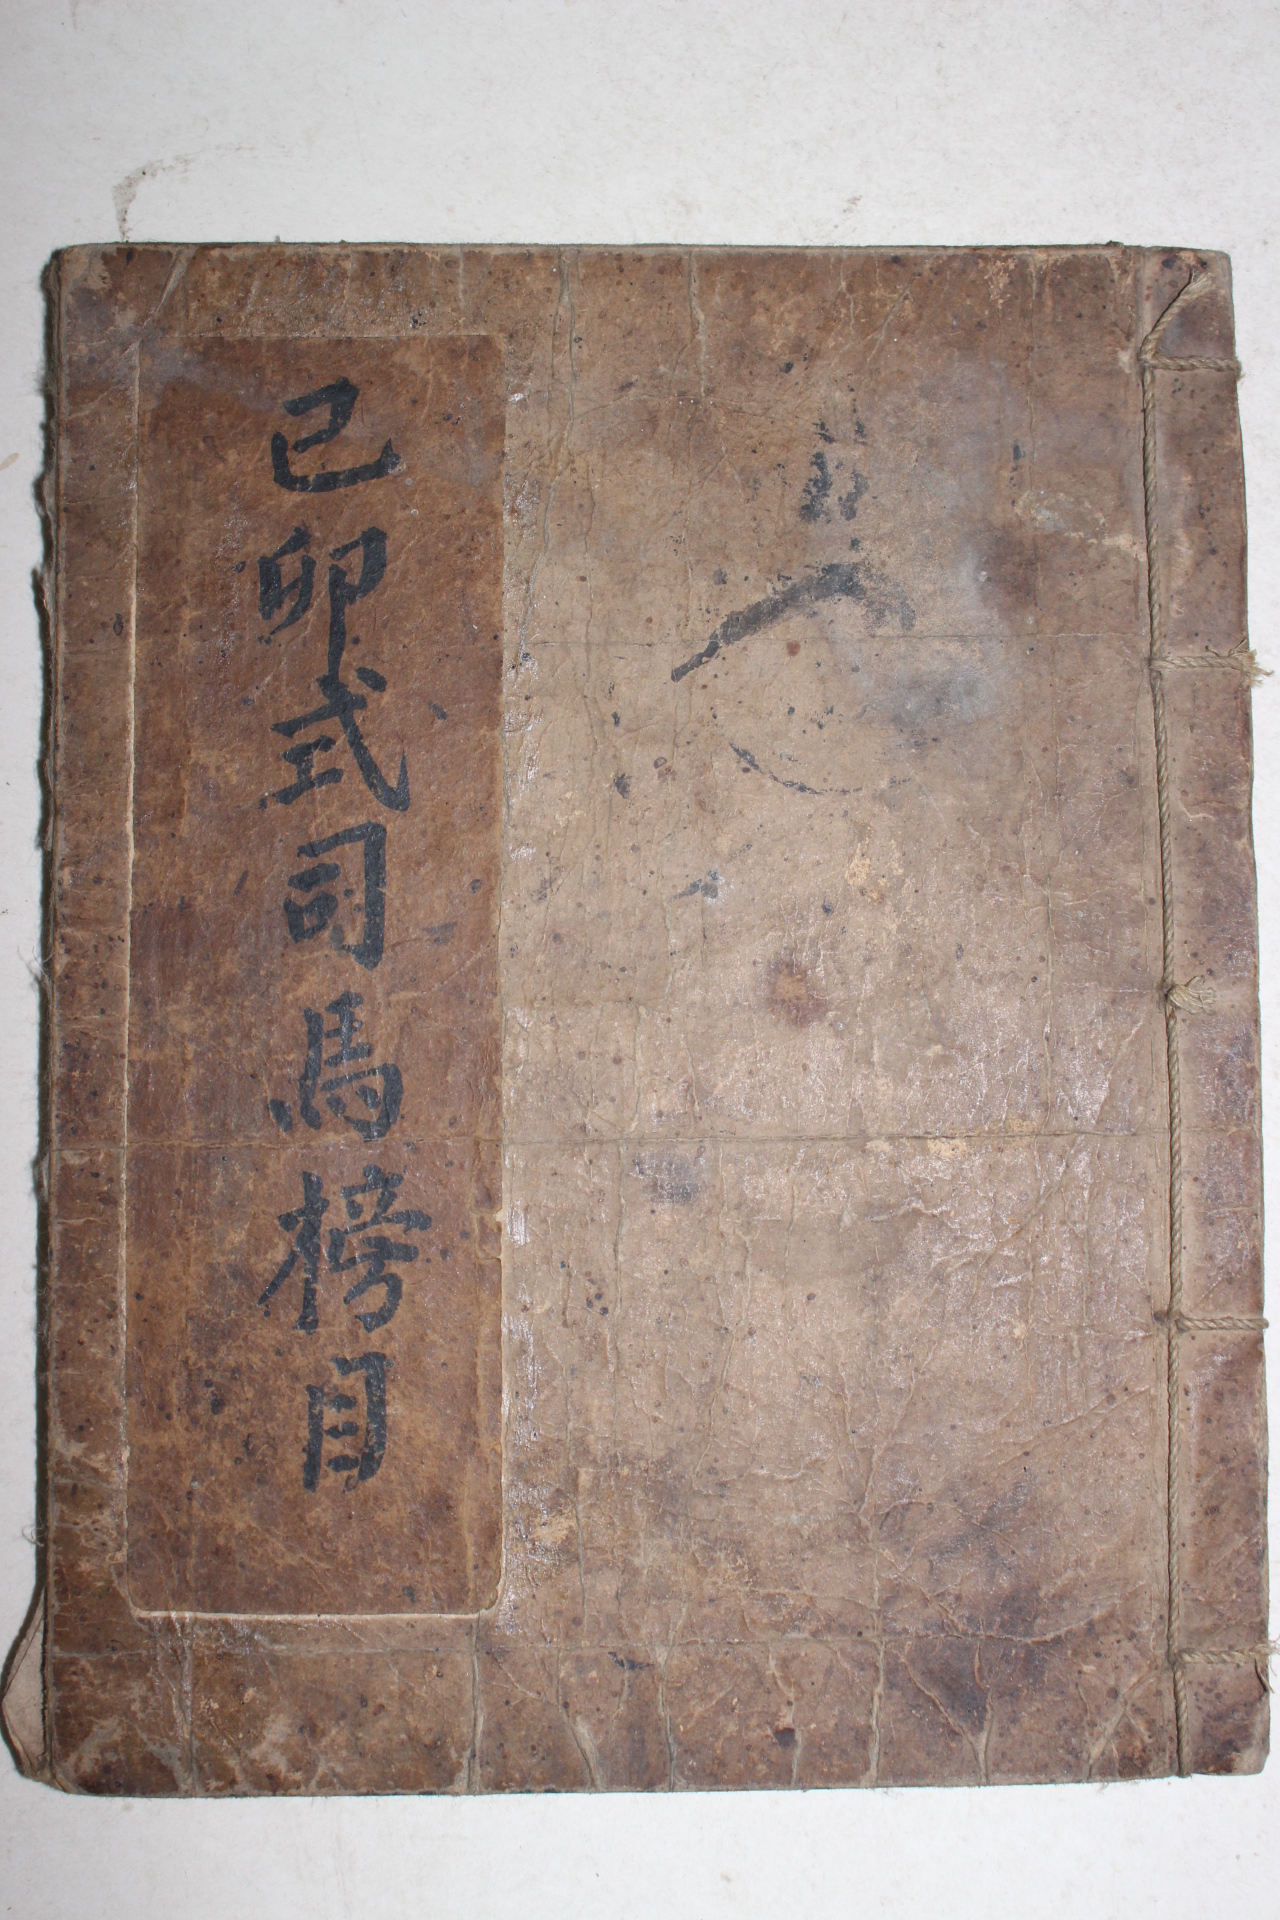 己卯式司馬榜目